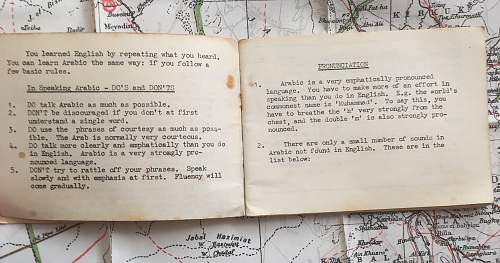 You learned English by repeating what you heard.
You can learn Arabic the same way: if you follow a
few basic rules.
In Speaking Arabic - DO'S and DON'TS
1. DO talk Arabic as much as possible.
2. DON'T be discouraged if you don't at first
understand a single word.
3. DO use the phrases of courtesy as much as poss-
ible. The Arab is normally very courteous.
4. DO talk more clearly and emphatically than you do
in English. Arabic is a very strongly pro-
nounced language.
5. DON'T try to rattle off your phrases. Speak
slowly and with emphasis at first. Fluency will
come gradually.
PRONUNCIATION
1. Arabic is a very emphatically pronounced
language. You have to make more of an effort in
speaking than you do in English. E.g. the world's
commonest name is 'Muhammad'. To say this, you
have to breathe the 'h' very strongly from the
chest, and the double 'm' is also strongly pro-
nounced.
2. There are only a small number of sounds in
Arabic not found in English. These are in the
list below:
KIRKUK
Jabal Hazimiat